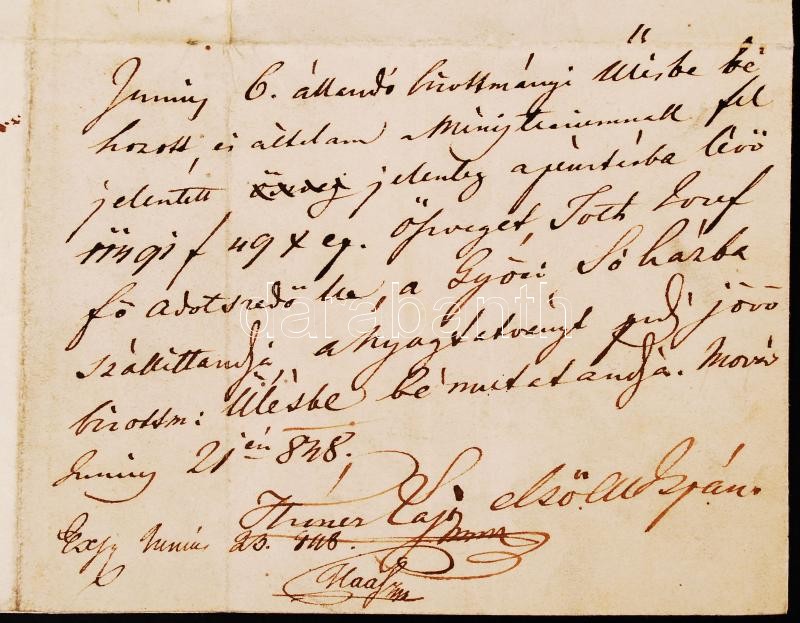 Junius 6. állandó birottmányi Ülésbe bé
hozott, és általam a Ministeriumnall fel
jelentett jelenleg a pénztárba lévő
f 49 x ep. Öszveget, Tóth Josef
fő adószedő Ur, a Győri Só házba
szállittandja, a Nyugtatványt pedig jövő
birottm: Ülésbe bé mutatandja.
Junius 21én 848.
Lajos első Al Ispán.
Exp Junius 23. 848.
Haas
darabanth